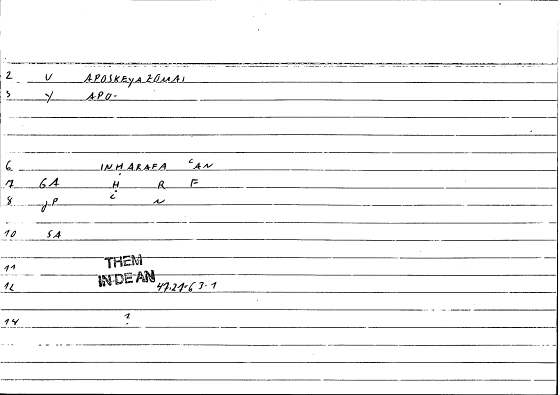 2 V APOSKEYAZOMAI
3 Y APO-
6 INHARAFA ʿAN
7 GA H R F
8 JP C N
10 SA
11 THEM
IN·DE·AN
12 47.21-63-1
14 ?